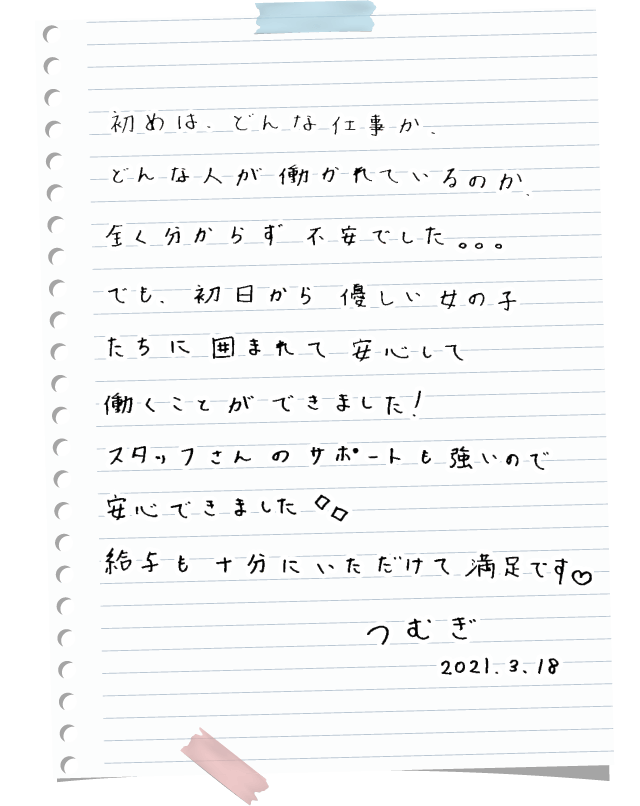 初めは、どんな仕事か、
どんな人が働かれているのか、
全く分からず 不安でした。。。
でも、初日から 優しい女の子
たちに 囲まれて 安心して
働くことができました!
スタッフさんのサポートも強いので
安心できました◇◇
給与も十分にいただけて満足です♡
つむぎ
2021.3.18